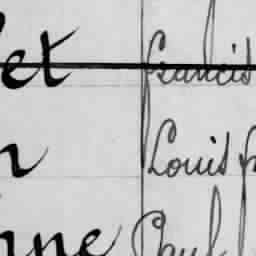 et francis
n Louis
nne Paul